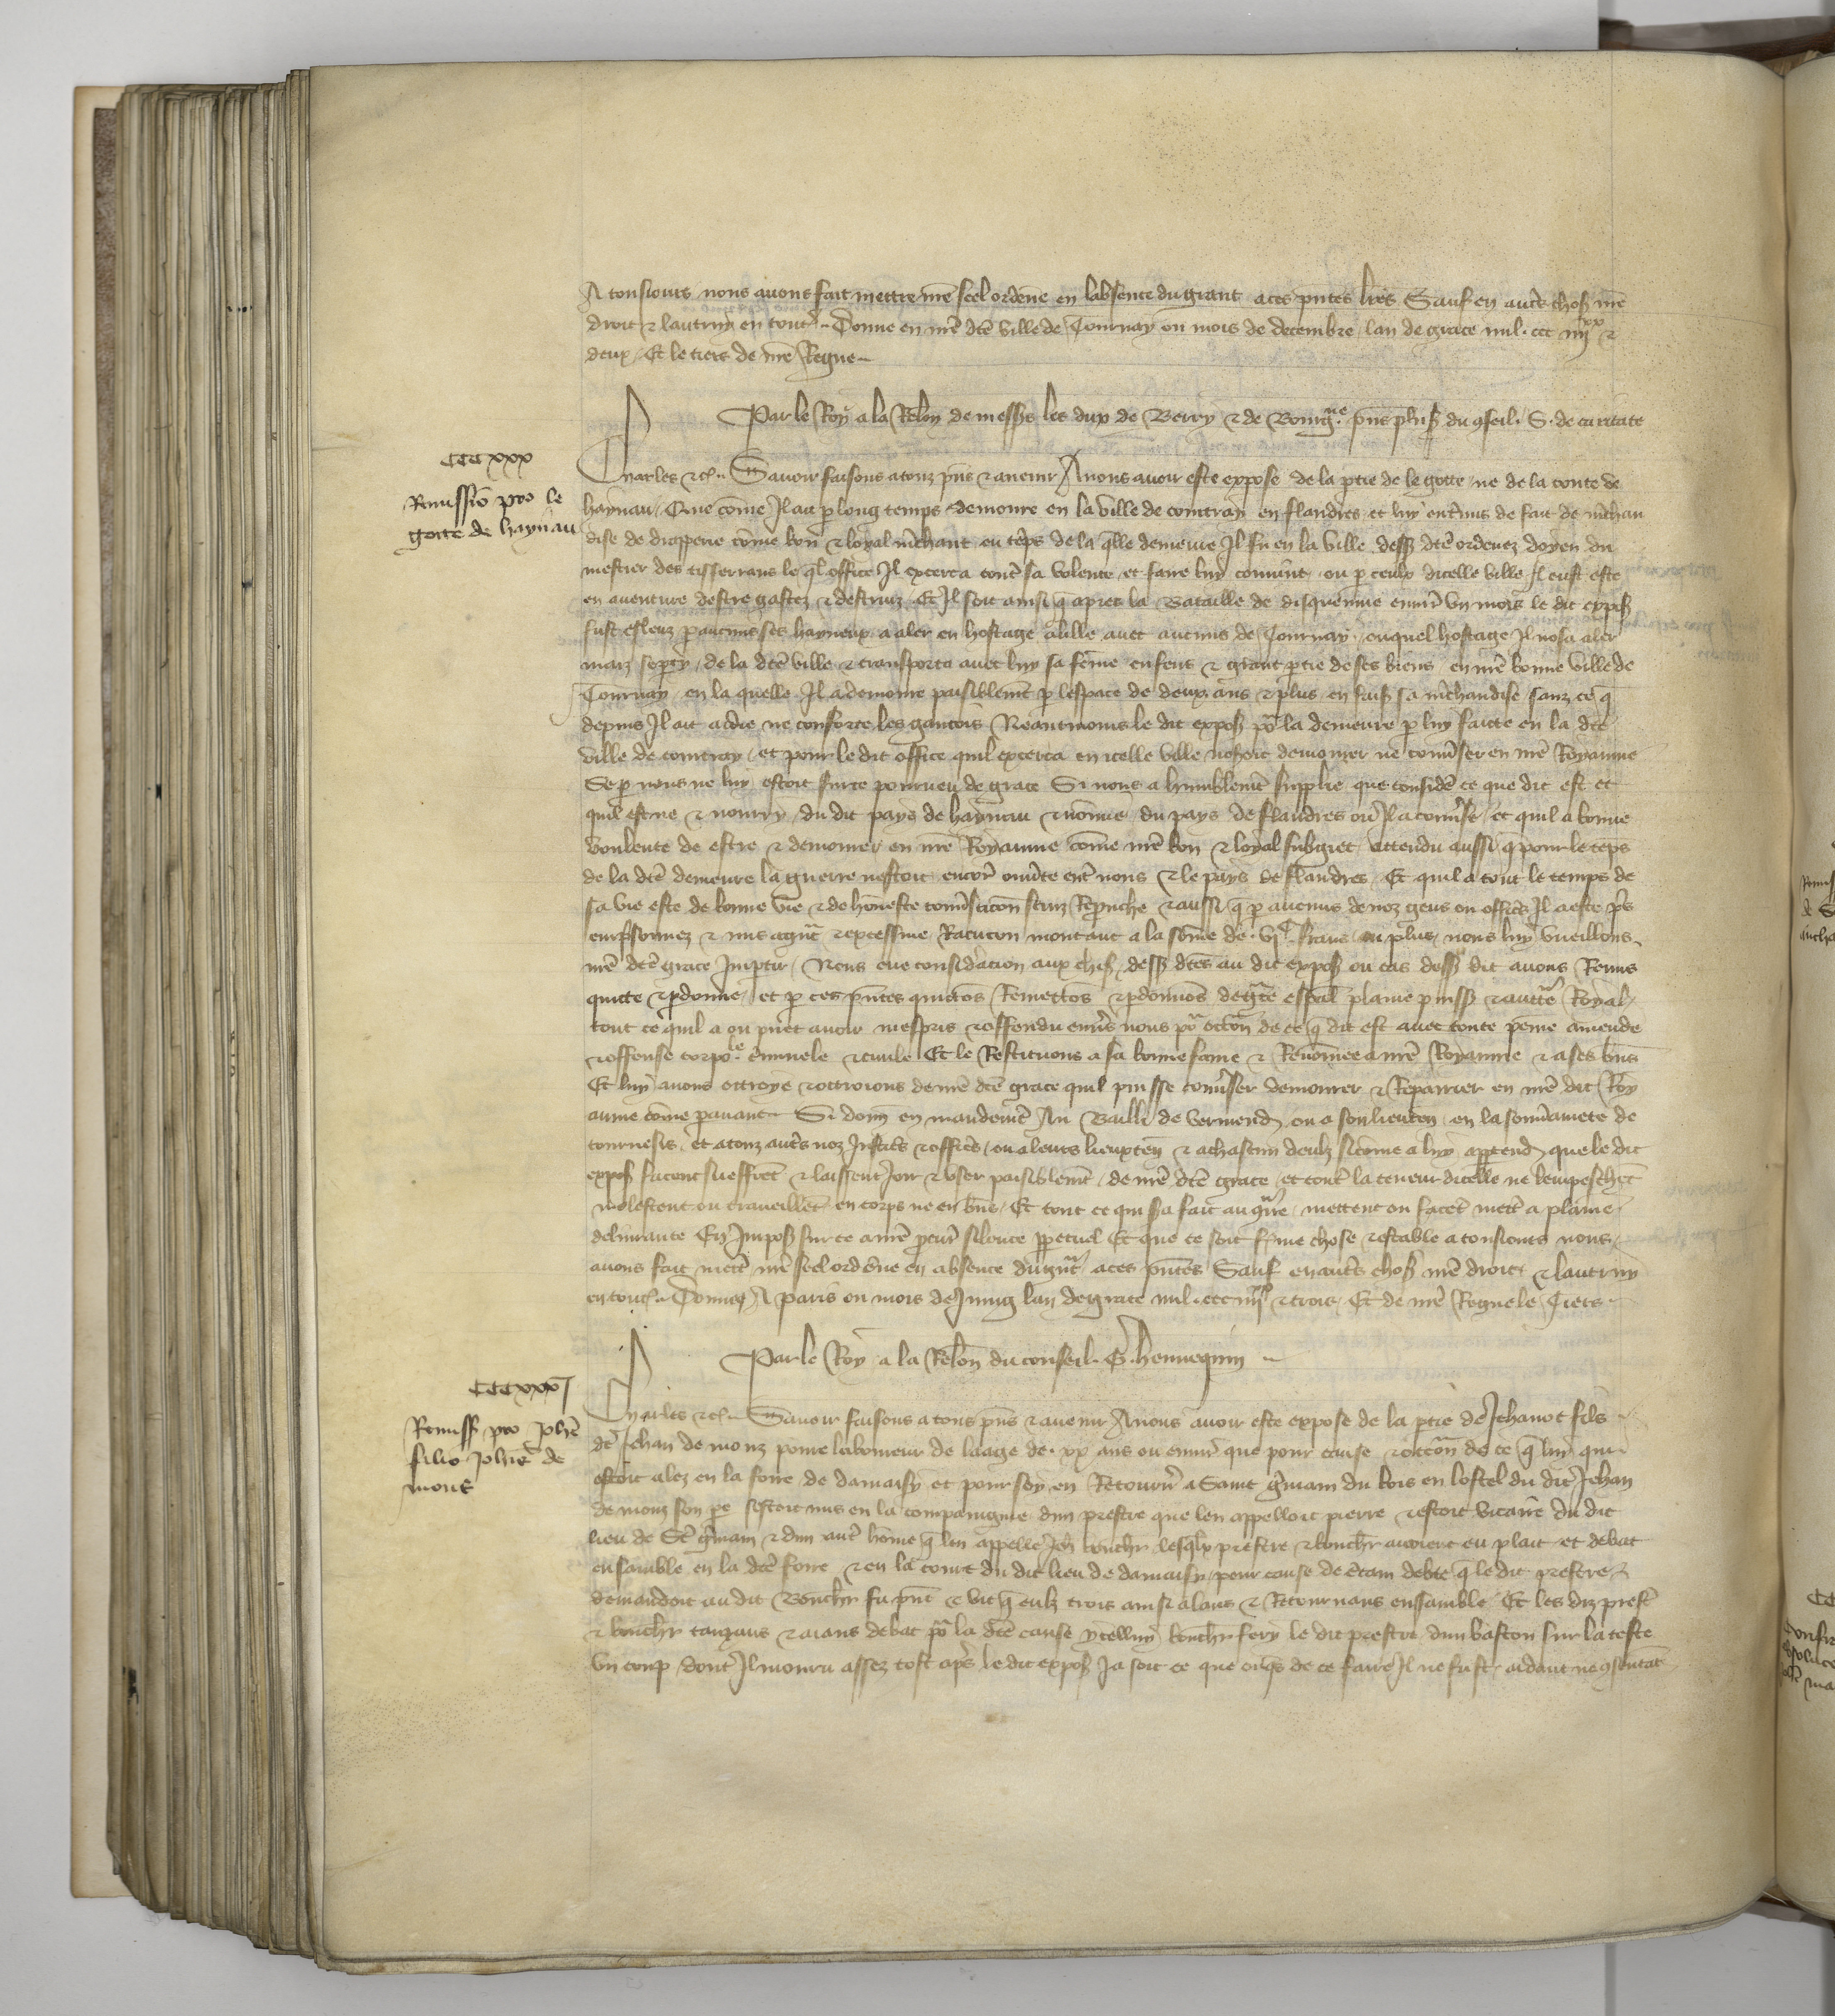 A tousiours nous avons fait mettre nre̅ seel ordene en labsence du grant a ces pn̅tes lres̅ Sauf en autres choses nre̅
droit & lautruy en toutes Donne en nre̅ dce̅ ville de Tournay ou mois de decembre lan de grace mil ccc iiijxx &
deux Et le tiers de nre̅ Regne
Par le Roy a la Relon̅ de mess̅ les dux de Berry & de Bourgne pn̅s plus̅ du conseil S. de caritate
CCCxxx
Remissio̅ pro le
gotte de haynau
Charles &c Savoir faisons a touz pn̅s & avenir A nous avoir este expose de la p̅tie de le gotte ne de la conte de
haynau Que co̅me Il ait p̅ long temps demoure en la ville de courtray en flandres et luy entremis de fait de m̅chan
dise de drapperie co̅me bon & loyal m̅chant ou te̅ps de la q̅lle demeure Il fu en la ville dess̅ dce̅ ordenez doyen du
mestier des tisserrans le q̅l office Il excerca contre sa volente et faire luy convint ou p̅ ceulx dicelle ville Il eust este
en aventure destre gastez & destruiz Et Il soit ainsi q̅ apres la Bataille de disquemue environ un mois le dit expos̅
fust esleuz p̅ aucuns ses hayneux a aler en hostage a lille avec aucuns de Tournay ouquel hostage Il nosa aler
maiz se p̅ty de la dce̅ ville & transporta avec luy sa fe̅me enfens & grant p̅tie de ses biens en nre̅ bonne ville de
Tournay en la quelle Il a demoure paisiblemt̅ p̅ lespace de deux ans & plus en fais̅ sa m̅chandise sanz ce q̅
depuis Il ait aidie ne conforte les gantois Neantmoins le dit expos̅ po̅ la demeure p̅ luy faicte en la dce̅
ville de courtray et pour le dit office quil excerca en icelle ville nosoit demourer ne conv̅ser en nre̅ Royaume
Se p̅ nous ne luy estoit surce pourveu de grace Si nous a humblemt̅ supplie que conside̅ ce que dit est et
quil est ne & nourry du dit pays de haynau & no̅mie du pays de flandres ou Il a conv̅se et quil a bonne
voulente de estre & demourer en nre̅ Royaume co̅me nre̅ bon & loyal subgiet attendu aussi q̅ pour le te̅ps
de la dce̅ demeure la guerre nestoit encor̅ ouv̅te ent̅ nous & le pays de flandres Et quil a tout le temps de
sa vie este de bonne vie & de honneste conv̅sacion sanz Reprouche & aussi q̅ p̅ aucuns de noz gens ou offic̅s Il a este p̅s
emp̅sonnez & mis a gn̅t & excessive Raencon montant a la so̅me de vjC frans ou plus nous luy vueillons
nre̅ dce̅ grace Imp̅tir Nous eue consid̅acion aux chos̅ dess̅ dce̅s au dit expos̅ ou cas dess̅ dit avons Remis
quitte & p̅donne et p̅ ces pn̅tes quicto̅s Remetto̅s & p̅donno̅s de grace esp̅al plaine puiss̅ & auctte̅ Royal
tout ce quil a ou puet avoir mespris & offendu env̅s nous po̅ occo̅n de ce q̅ dit est avec toute peine amende
& offense corpo̅le c̅iminele & civile Et le Restituons a sa bonne fame & Reno̅mee a nre̅ Royaume & a ses bn̅s
Et luy avons ottroye & ottroions de nre̅ dce̅ grace quil puisse conv̅ser demourer & Repairier en nre̅ dit Roy
aume co̅me p̅ avant Si donn̅ en mandemt̅ Au Bailli de vermend̅ ou a son lieuten̅ en la souv̅ainete de
tournesis et a touz aut̅s noz Justic̅s & offic̅s ou a leurs lieuxten̅ & a chascun deulz si co̅me a luy app̅tend̅ que le dit
expos̅ facent sueffrent & laissent Joir & user paisiblemt̅ de nre̅ dce̅ grace et cont̅ la teneur dicelle ne lempeschent
molestent ou traveillent en corps ne en bn̅s Et tout ce qui s̅a fait au cont̅re mettent ou facent mett̅ a plaine
delivrance En Impos̅ sur ce a nre̅ p̅cur̅ silence pp̅etuel Et que ce soit f̅me chose & estable a tousiours nous
avons fait mett̅ nre̅ seel ordene en absence du gn̅t a ces pn̅tes Sauf en aut̅s chos̅ nre̅ droit & lautruy
en toutes Donnez A paris ou mois de Juing lan de grace mil ccc iiijxx & trois Et de nre̅ Regne le Tiers
Par le Roy a la Relon̅ du conseil G. hennequin
CCCxxxj
Remiss̅ pro Joh̅e
filio Joh̅is de
mons
Charles &c Savoir faisons a tous pn̅s & avenir A nous avoir este expose de la p̅tie de Jehanot fils
de Jehan de monz povre laboureur de laage de xx ans ou environ que pour cause & occo̅n de ce q̅ luy qui
estoit alez en la foire de damaisy et pour soy en Retourn̅ a Saint g̅main du bois en lostel du dit Jehan
de monz son pe̅ sestoit mis en la compaingnie dun prestre que len appelloit pierre & estoit vicaire du dit
lieu de St̅ g̅main & dun aut̅ ho̅me q̅ len appelle Jeh̅ bouch̅r lesq̅lx prestre & bouch̅r avoient eu plait et debat
ensamble en la dce̅ foire & en la court du dit lieu de damaisy pour cause de c̅tain debte q̅ le dit prestre
demandoit au dit Bouch̅r fu pn̅t & eulz trois ainsi alans & Retournans ensamble Et les diz prest̅
& bouch̅r tanzans & aians debat po̅ la dce̅ cause ycelluy bouch̅r fery le dit prestre dun baston sur la teste
un coup dont Il mouru assez tost ap̅s le dit expos̅ Ja soit ce que onq̅s de ce faire Il ne fust aidant ne consentat̅